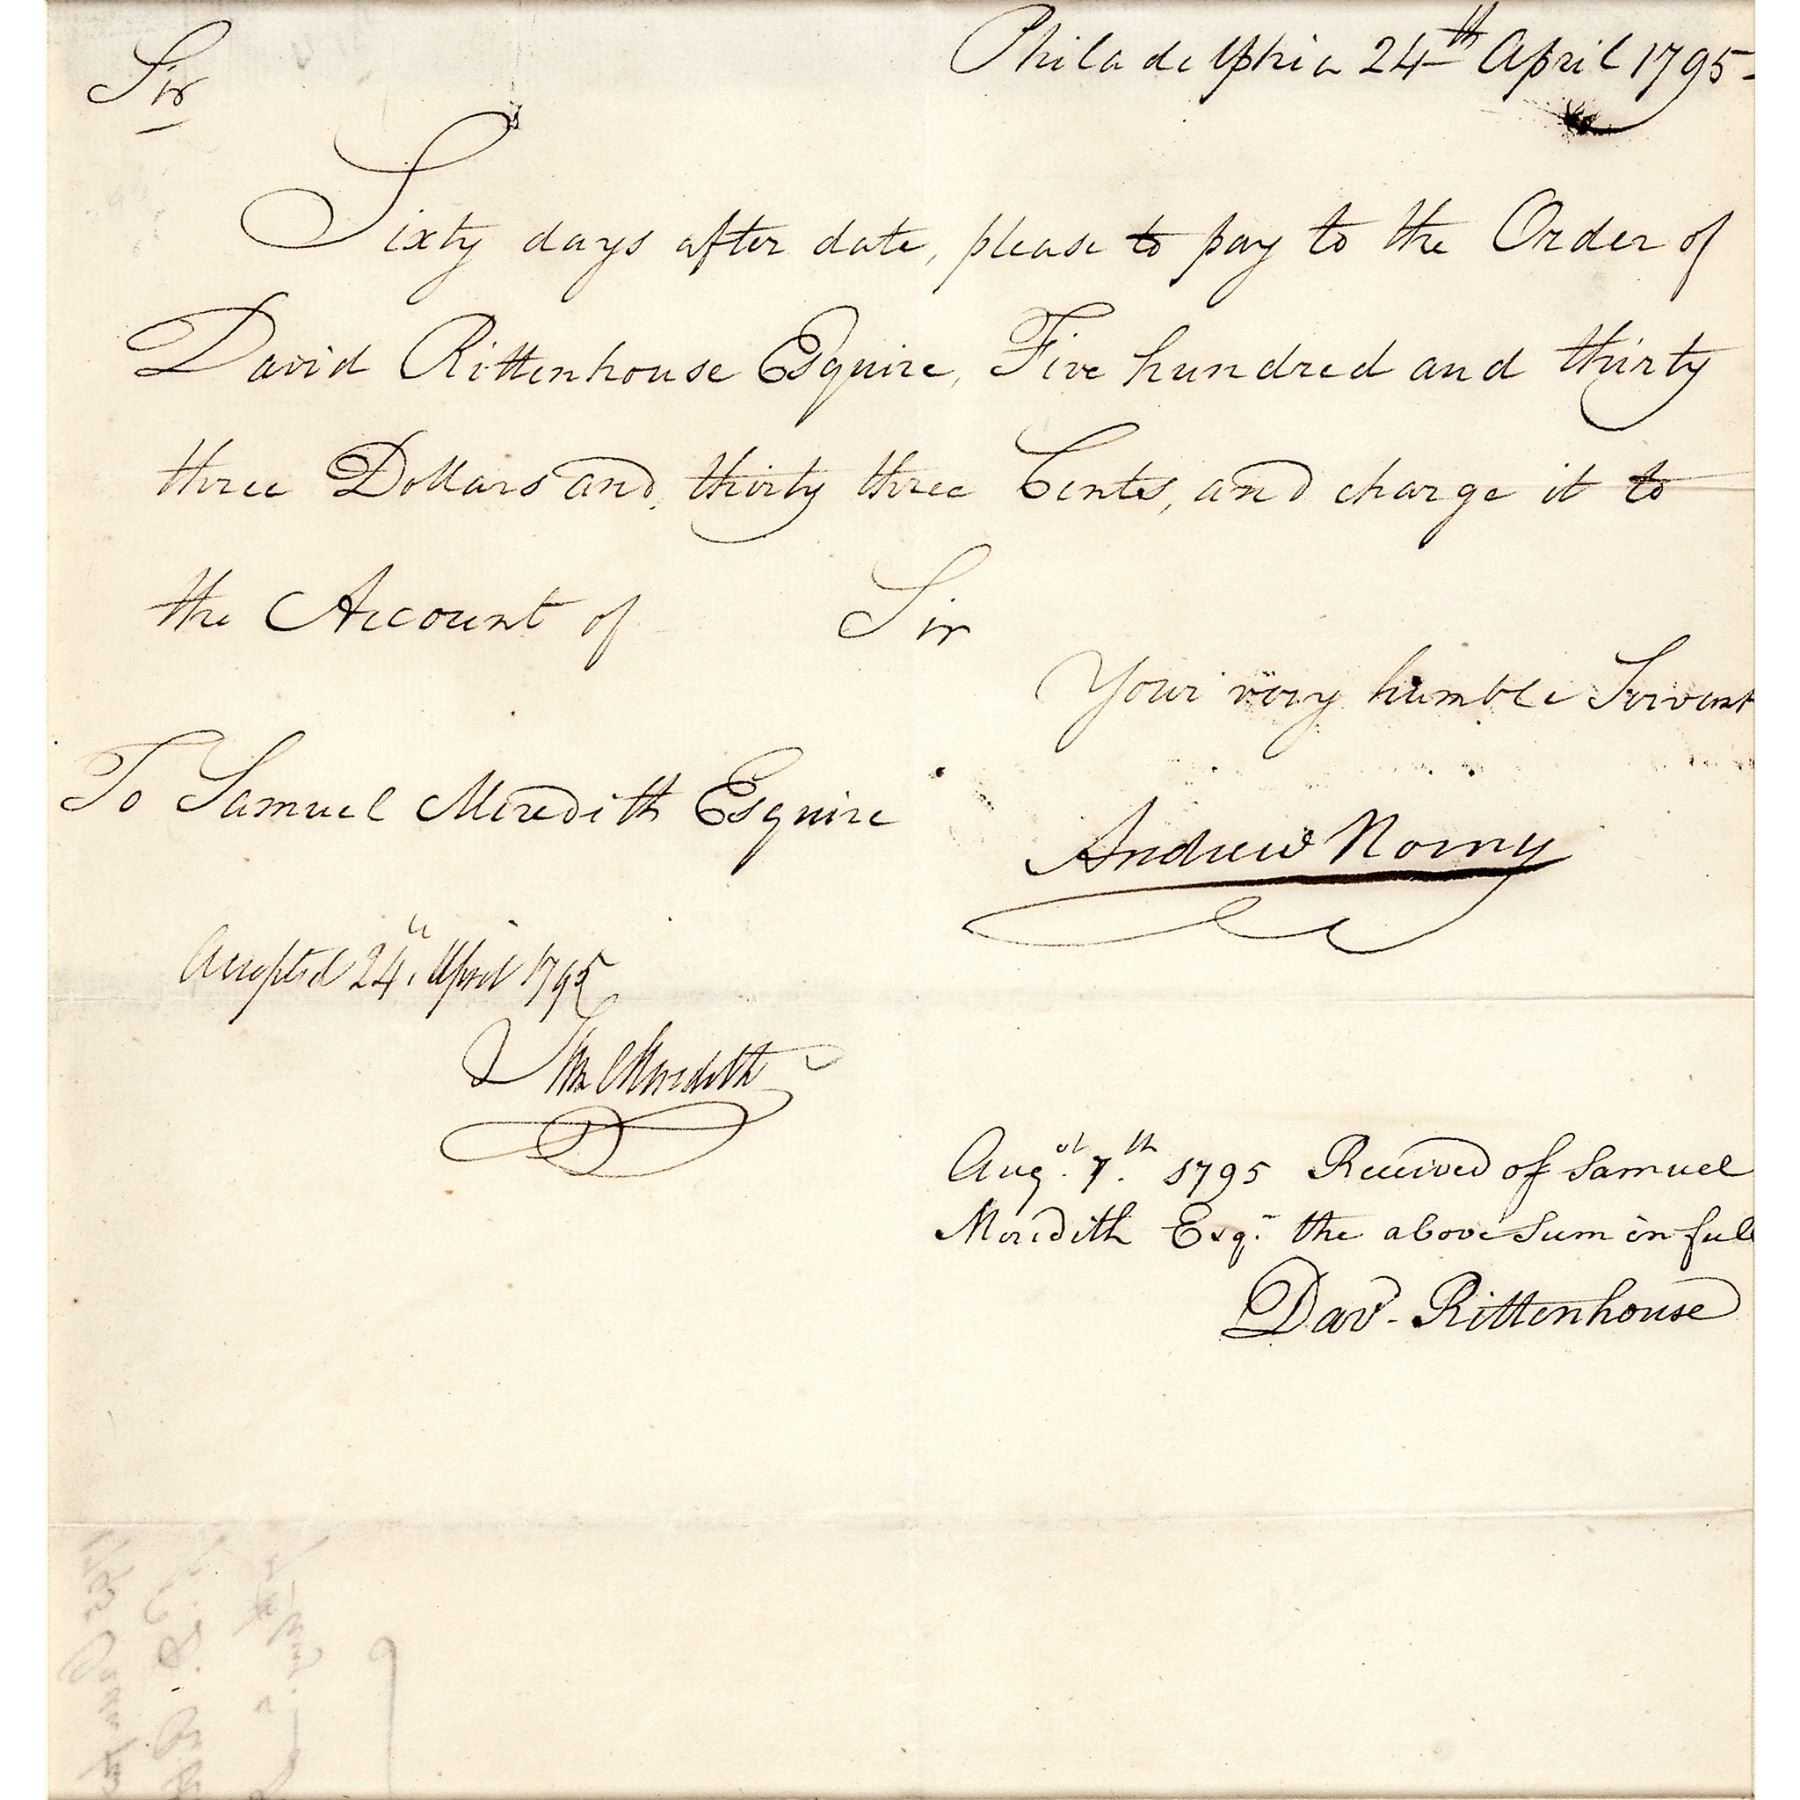 Philadelphia 24th April 1795-
Sir
Sixty days after date, please to pay to the Order of
David Rittenhouse Esquire, Five hundred and thirty
three Dollars and, thirty three Cents, and charge it to
the Account of Sir
Your very humble Servant
To Samuel Meredith Esquire
Andrew Norny
Accepted 24th April 1795
Sam Meredith
Augst. 7th. 1795 Received of Samuel
Meredith Esqr. the above Sum in full
Davd. Rittenhouse